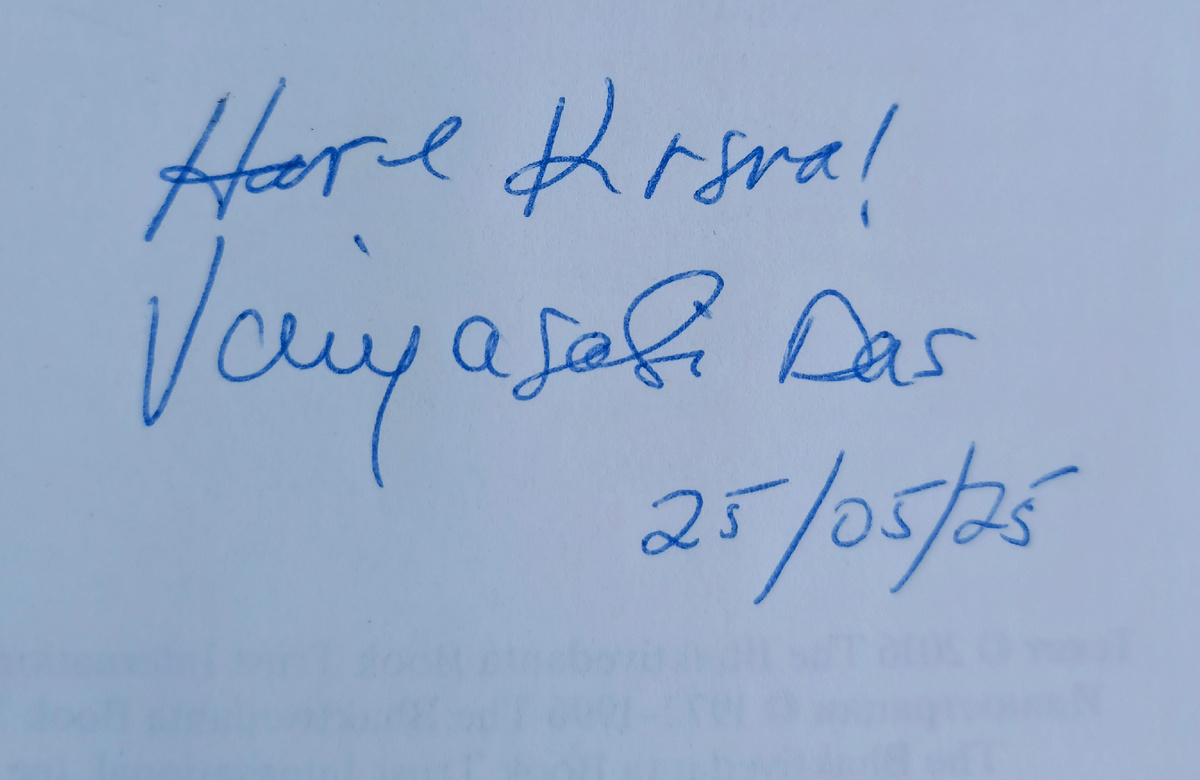 Hare Krsna!
Vaiyasaki Das
25/05/25
Текст © 2016 The Bhaktivedanta Book Trust Internation
Иллюстрации © 1972–1996 The Bhaktivedanta Book
The Bhaktivedanta Book Trust International, Inc